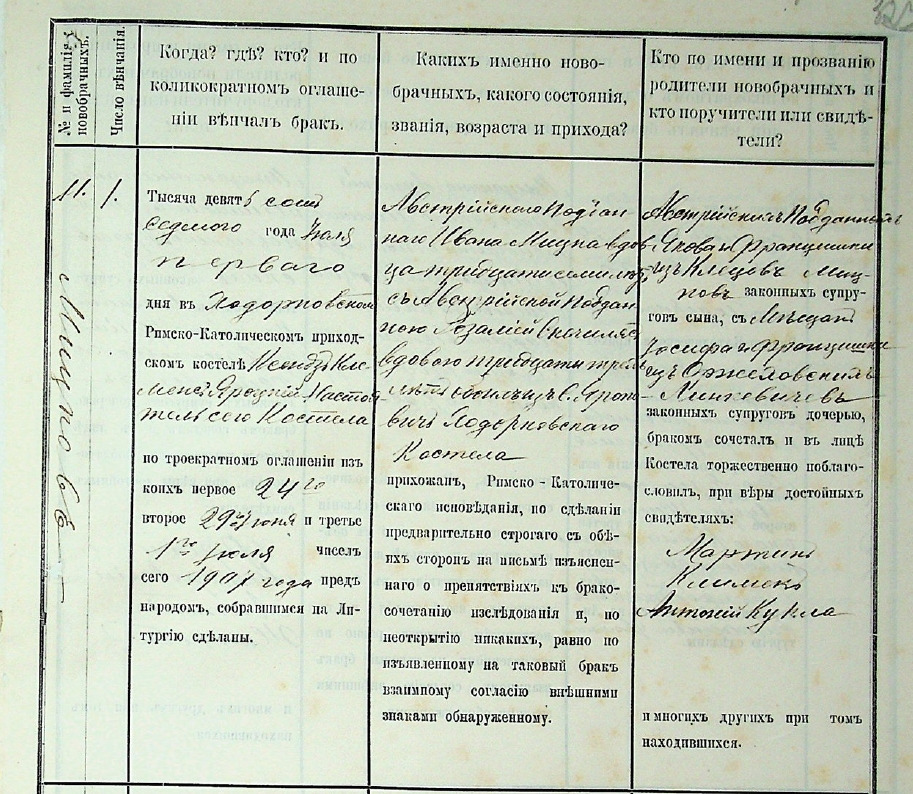 № и фамилія новобрачныхъ.
Число вѣнчанія.
Когда? гдѣ? кто? и по
коликократном оглаше-
ніи вѣнчалъ бракъ.
Какихъ именно ново-
брачныхъ, какого состоянія,
званія, возраста и прихода?
Кто по имени и прозванію
родители новобрачныхъ и
кто поручители или свидѣ-
тели?
11.
Мицновъ
1.
Тысяча девятьсотъ
седмого года Іюля
перваго
дня въ Ходорковском
Римско-Католическом приход-
скомъ костелѣ Ксендзъ Кле-
менсъ Насто-
тель сего Костела
по троекратном оглашеніи изъ
коихъ первое 24го
второе 29го Іюня и третье
1го Іюля чиселъ
сего 1907 года предъ
народомъ, собравшимся на Ли-
тургію сдѣланы.
Австрійскаго Поддан-
наго Ивана Мицна вдов-
ца тридцати семи лѣтъ
съ Австрійской Поддан-
ною Розаліей
вдовою тридцати трехъ
лѣтъ
Ходорковскаго
Костела
прихожанъ, Римско-Католиче-
скаго исповѣданія, по сдѣланіи
предварительно строгаго съ обѣ-
ихъ сторонъ на письмѣ изъяснен-
наго о препятствіяхъ къ брако-
сочетанію изслѣдованія и, по
неоткрытію никакихъ, равно по
изъявленному на таковый бракъ
взаимному согласію внѣшними
знаками обнаруженному.
Австрійскихъ Подданныхъ
Якова и Францишки
изъ Миц-
новъ законныхъ супру-
говъ сына, съ Мѣщанъ
Іосифа и Францишки
изъ
законныхъ супруговъ дочерью,
бракомъ сочеталъ и въ лицѣ
Костела торжественно поблаго-
словилъ, при вѣры достойныхъ
свидѣтеляхъ:
Мартинъ
Климекъ
Антоній Кукла
и многихъ другихъ при томъ
находившихся.